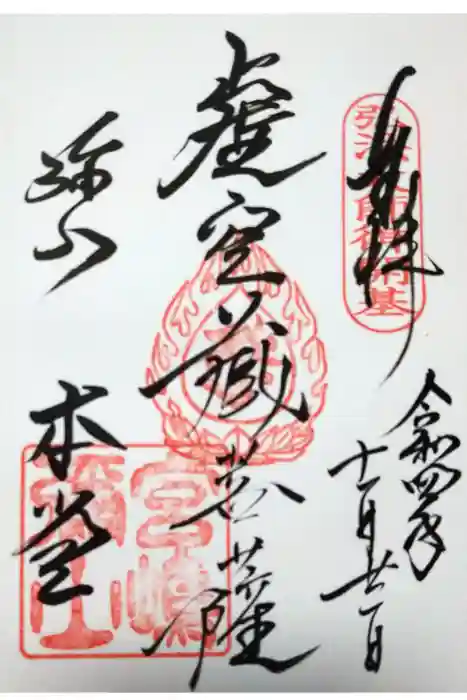 奉拝
弘法大師御開基
令和四年
十一月廿一日
虚空蔵菩薩
弥山
本堂
宮嶋
彌山